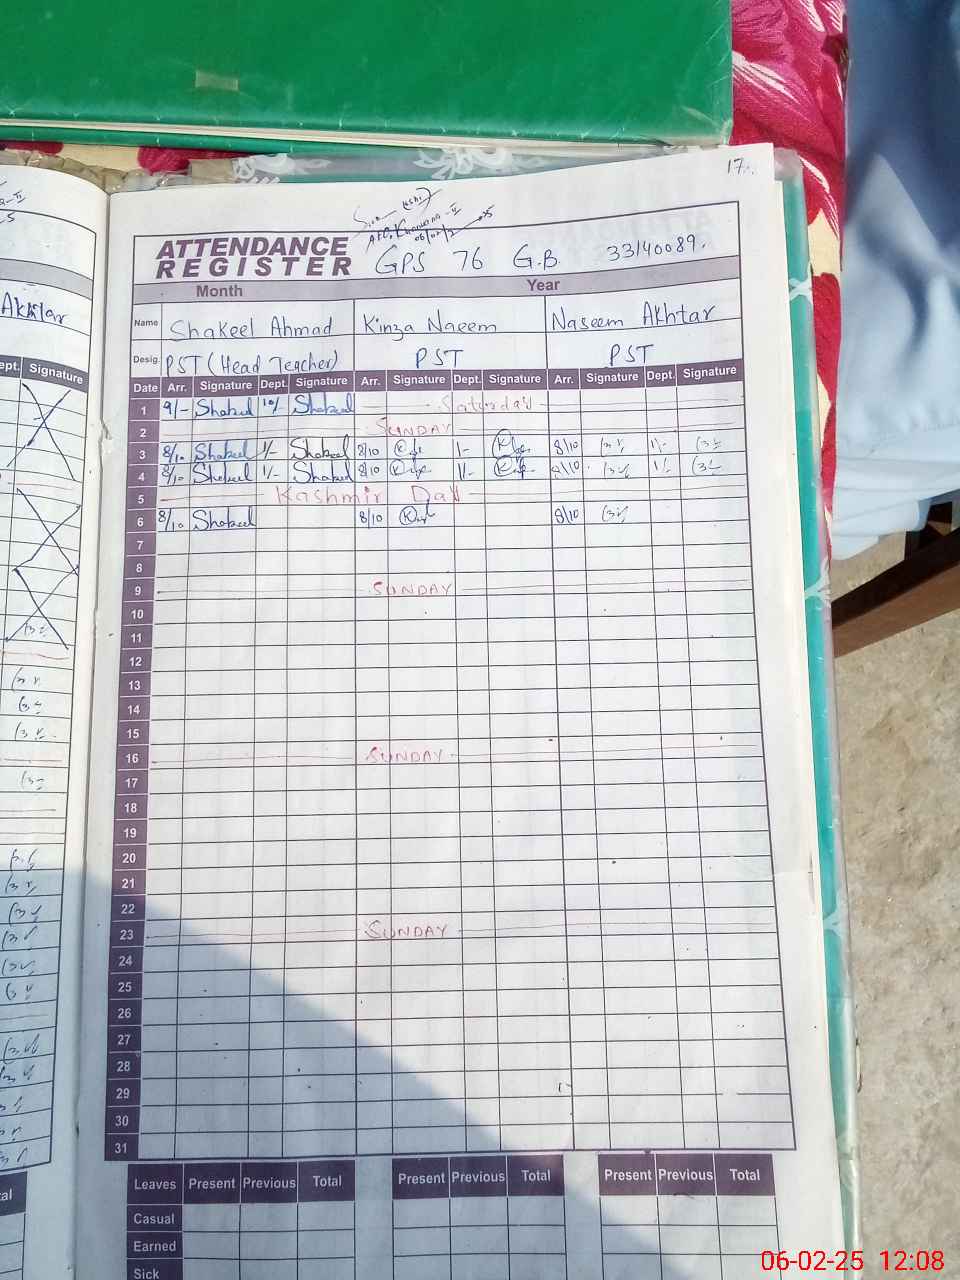 17
06/02/25
ATTENDANCE
REGISTER
GPS 76 G.B. 33140089.
Month Year
Name Shakeel Ahmad Kinza Naeem Naseem Akhtar
Desig. PST (Head Teacher) PST PST
Date Arr. Signature Dept. Signature Arr. Signature Dept. Signature Arr. Signature Dept. Signature
1 9/- Shakeel 10/- Shakeel Saturday
2 SUNDAY
3 8/10 Shakeel 1/- Shakeel 8/10 1/- 8/10 1/-
4 8/10 Shakeel 1/- Shakeel 8/10 1/- 8/10 1/-
5 Kashmir Day
6 8/10 Shakeel 8/10 8/10
7
8
9 SUNDAY
10
11
12
13
14
15
16 SUNDAY
17
18
19
20
21
22
23 SUNDAY
24
25
26
27
28
29
30
31
Leaves Present Previous Total Present Previous Total Present Previous Total
Casual
Earned
Sick
Akhtar
ept. Signature
tal
06-02-25 12:08